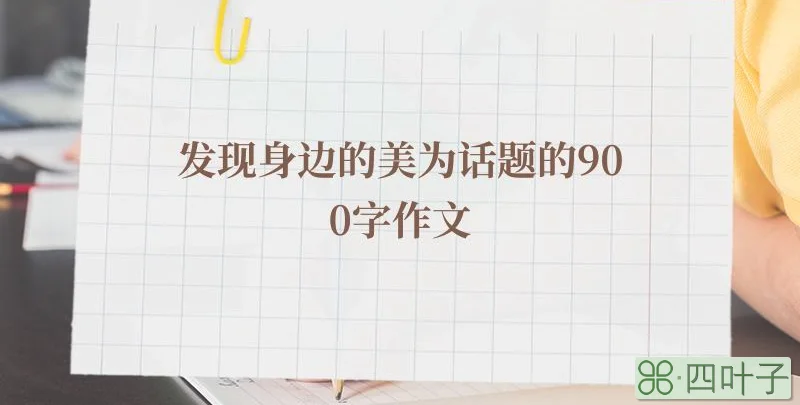 发现身边的美为话题的90
0字作文
四叶子